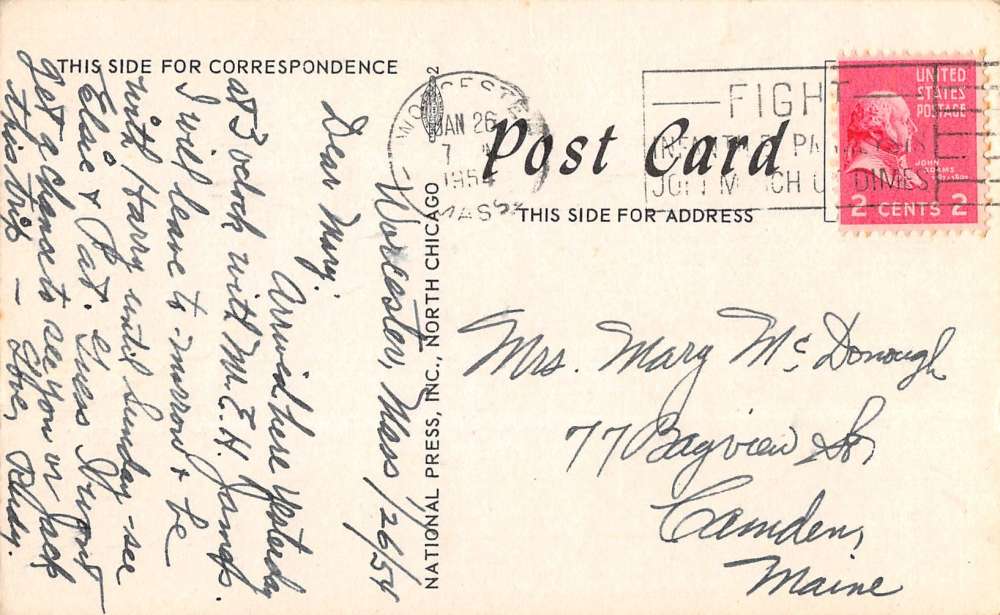 THIS SIDE FOR CORRESPONDENCE
Worcester, Mass 1/26/54
Dear Mary:
Arrived here yesterday
at 3 o'clock with Mr. E. H. James.
I will leave to-morrow & be
with Harry until Sunday - see
Elsie & Pat. Guess I won't
get a chance to see you or Jack
this trip - Love,
NATIONAL PRESS, INC., NORTH CHICAGO
2
WORCESTER
JAN 26
7
1954
MASS.
FIGHT
INFANTILE PARALYSIS
JOIN MARCH OF DIMES
UNITED
STATES
POSTAGE
JOHN
ADAMS
2 CENTS 2
Post Card
THIS SIDE FOR ADDRESS
Mrs. Mary McDonough
77 Bayview St,
Camden,
Maine